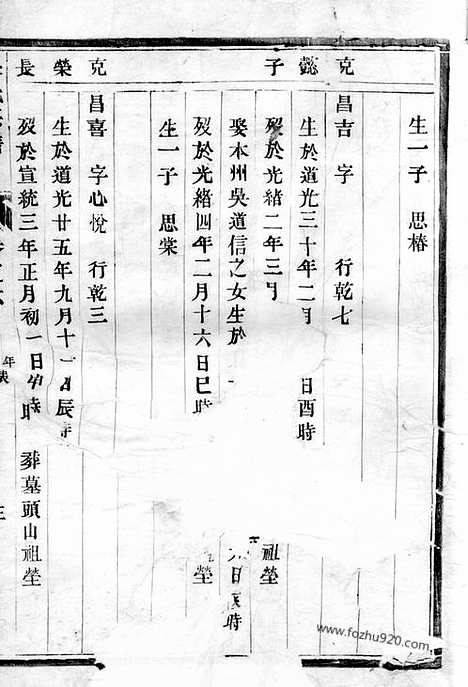 生一子 思椿
克懿子
昌吉 字 行乾七
生於道光三十年二月 日酉時
歿於光緒二年三月 祖塋
娶本州吳道信之女生於 日 時
歿於光緒四年二月十六日巳時 塋
生一子 思棠
克榮長
昌喜 字心悅 行乾三
生於道光廿五年九月十 日辰時
歿於宣統三年正月初一日 時 葬墓頭山祖塋
年表
www.fozhu920.com